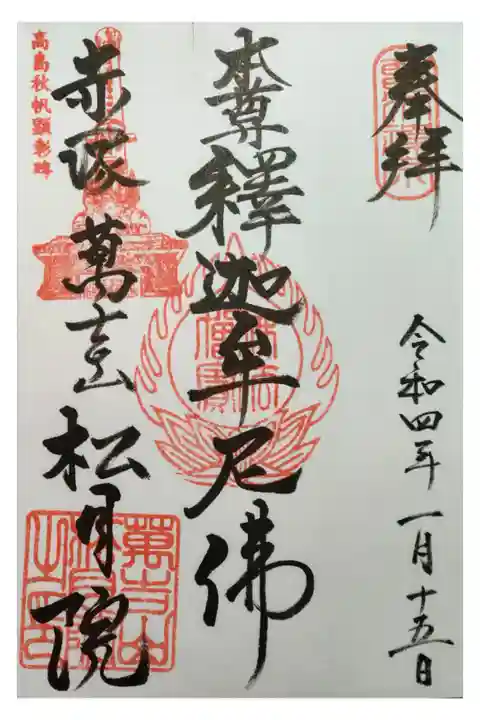 奉拝
令和四年一月十五日
本尊釋迦牟尼佛
赤塚 萬吉山 松月院
高島秋帆顕彰碑
萬吉山
松月院
之印